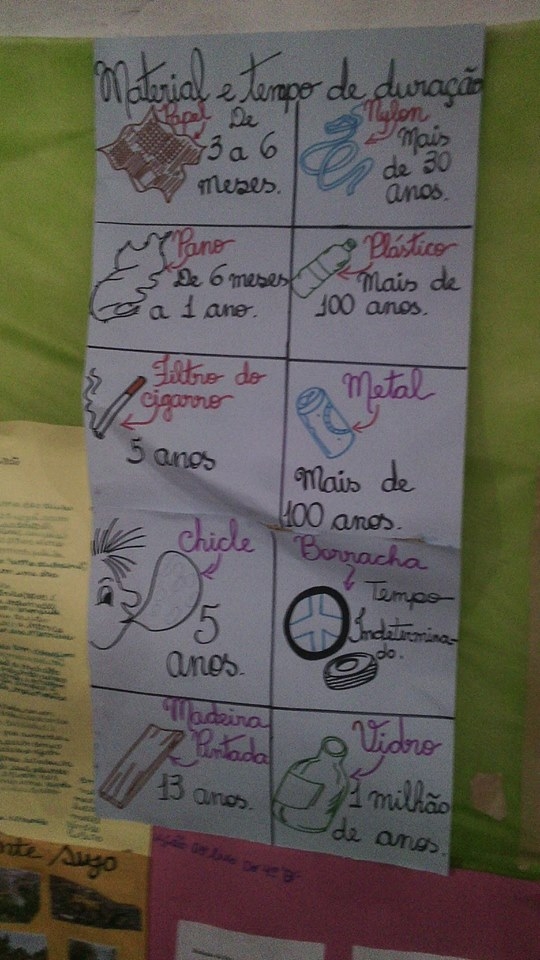 Material e tempo de duração
Papel
De
3 a 6
meses.
Nylon
Mais
de 30
anos.
Pano
De 6 meses
a 1 ano.
Plástico
Mais de
100 anos.
Filtro do
cigarro
5 anos
Metal
Mais de
100 anos.
chicle
5
anos.
Borracha
Tempo
Indetermina-
do.
Madeira
Pintada
13 anos.
Vidro
1 milhão
de anos.
nte Sujo